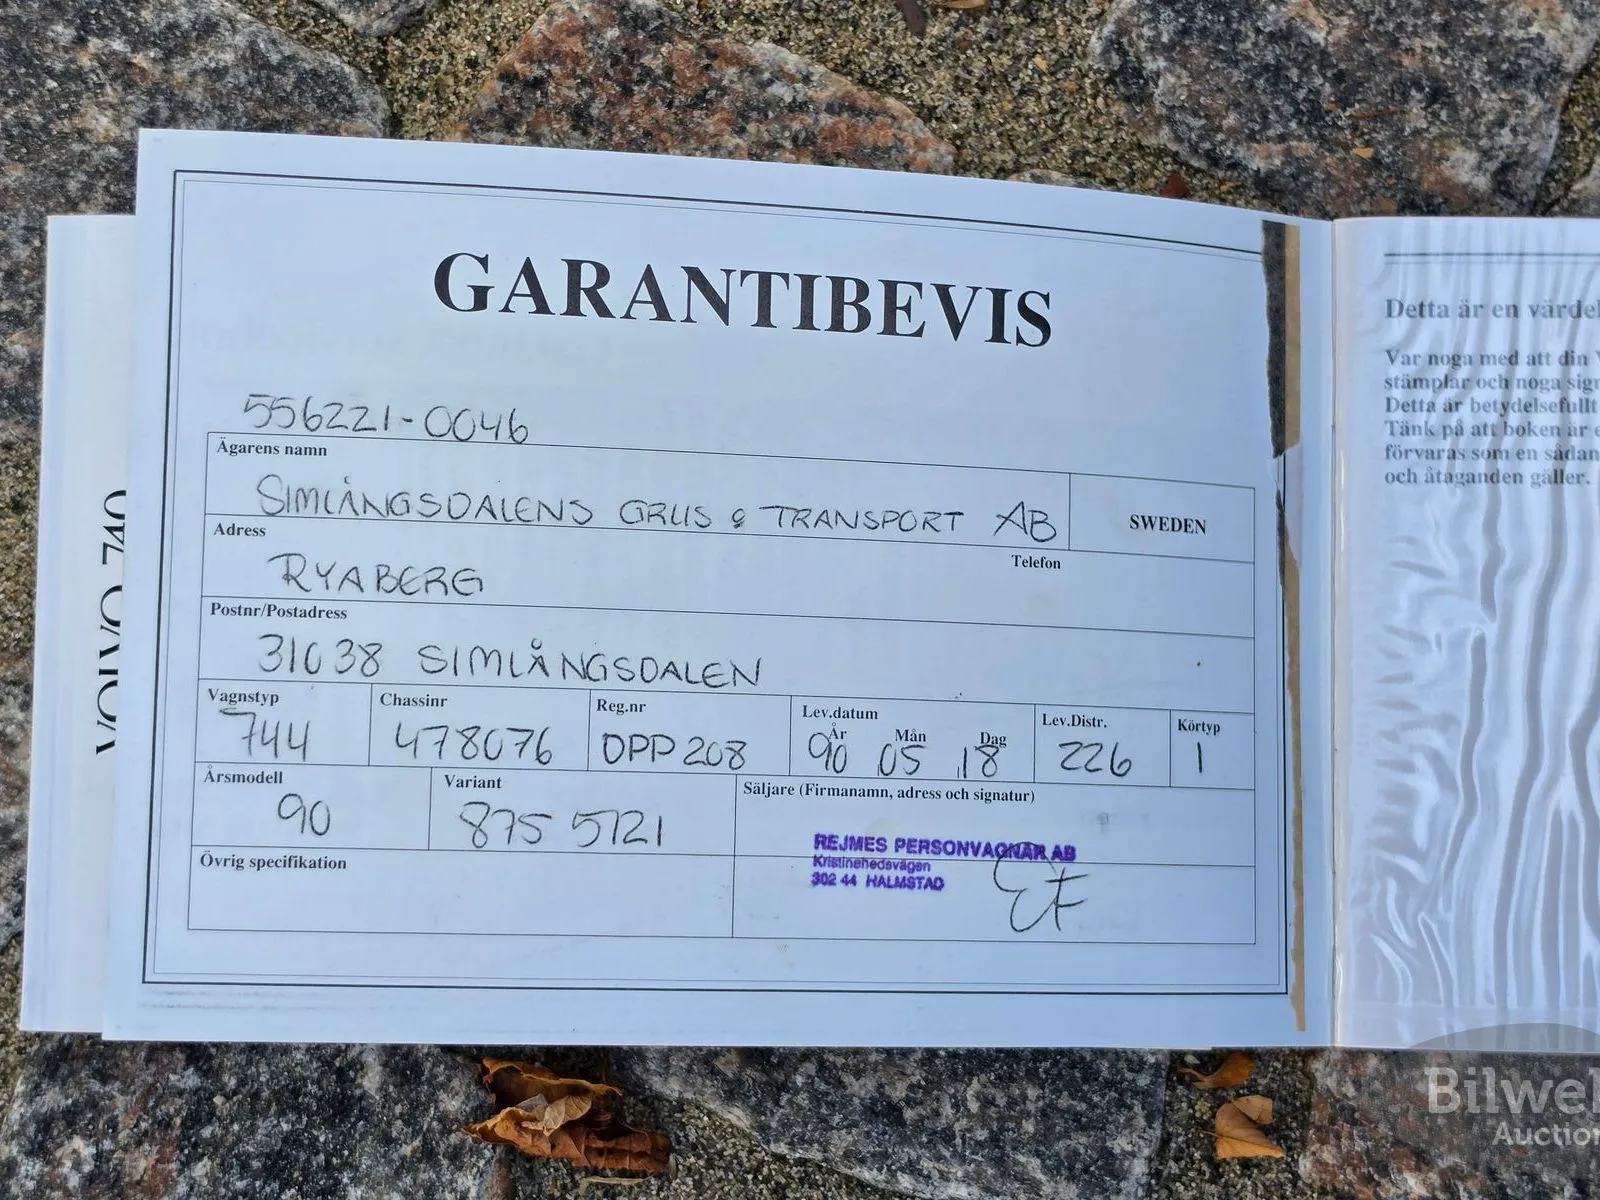 GARANTIBEVIS
556221-0046
Ägarens namn
SIMLÅNGSDALENS GRUS & TRANSPORT AB
SWEDEN
Adress
Telefon
RYABERG
Postnr/Postadress
31038 SIMLÅNGSDALEN
Vagnstyp Chassinr Reg.nr Lev.datum Lev.Distr. Körtyp
År Mån Dag
744 478076 OPP208 90 05 18 226 1
Årsmodell Variant Säljare (Firmanamn, adress och signatur)
90 875 5721
REJMES PERSONVAGNAR AB
Kristinehedsvägen
302 44 HALMSTAD
EF
Övrig specifikation
VOLVO 740
Detta är en värdel
Var noga med att din V
stämplar och noga sign
Detta är betydelsefullt
Tänk på att boken är e
förvaras som en sådan
och åtaganden gäller.
Bilwel
Auction